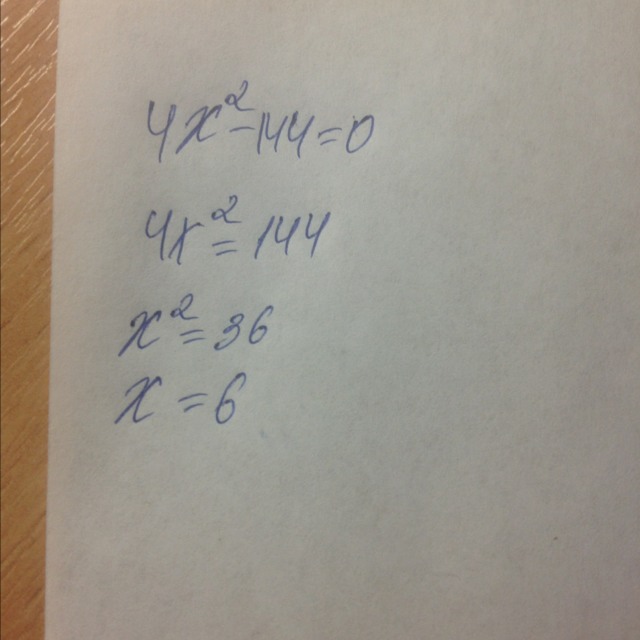 4x²-144=0
4x²=144
x²=36
x=6